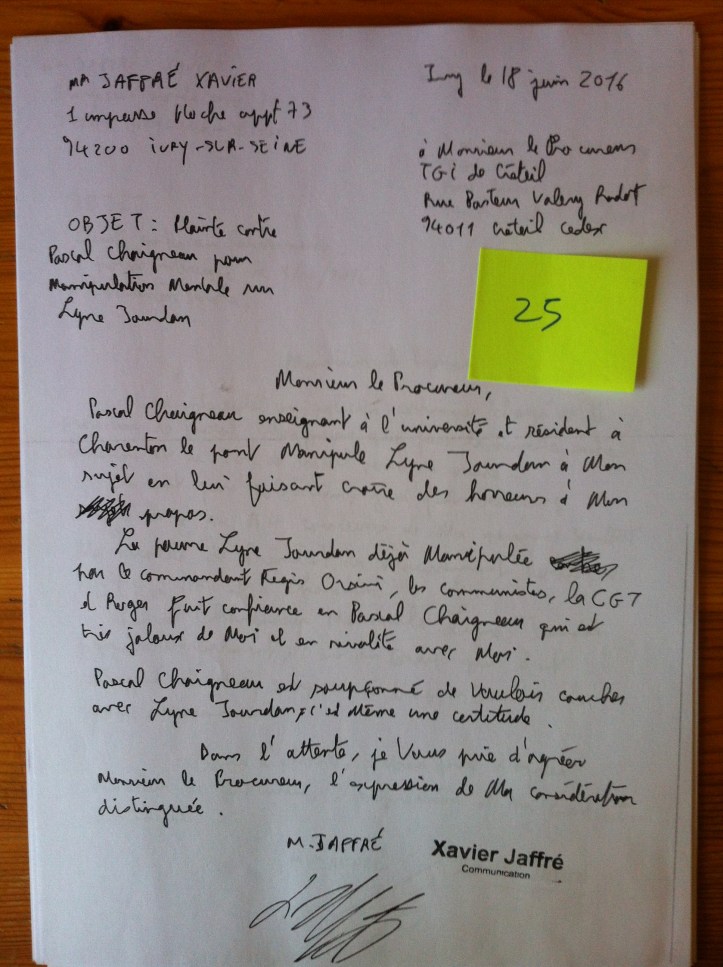 MR JAFFRÉ XAVIER
1 impasse Hoche appt 73
94200 IVRY-SUR-SEINE
Ivry le 18 juin 2016
à Monsieur le Procureur
TGI de Créteil
Rue Pasteur Valery Radot
94011 Créteil Cedex
OBJET : Plainte contre
Pascal Chaigneau pour
Manipulation Mentale sur
Lyne Jourdan
25
Monsieur le Procureur,
Pascal Chaigneau enseignant à l'université et résident à
Charenton le pont Manipule Lyne Jourdan à Mon
sujet en lui faisant croire des horreurs à Mon
propos.
La pauvre Lyne Jourdan déjà Manipulée
par le commandant Regis Orsini, les communistes, la CGT
et Roger fait confiance en Pascal Chaigneau qui est
très jaloux de Moi et en rivalité avec Moi.
Pascal Chaigneau est soupçonné de Vouloir coucher
avec Lyne Jourdan, c'est Même une certitude.
Dans l'attente, je Vous prie d'agréer
Monsieur le Procureur, l'expression de Ma considération
distinguée.
M. JAFFRÉ
Xavier Jaffré
Communication